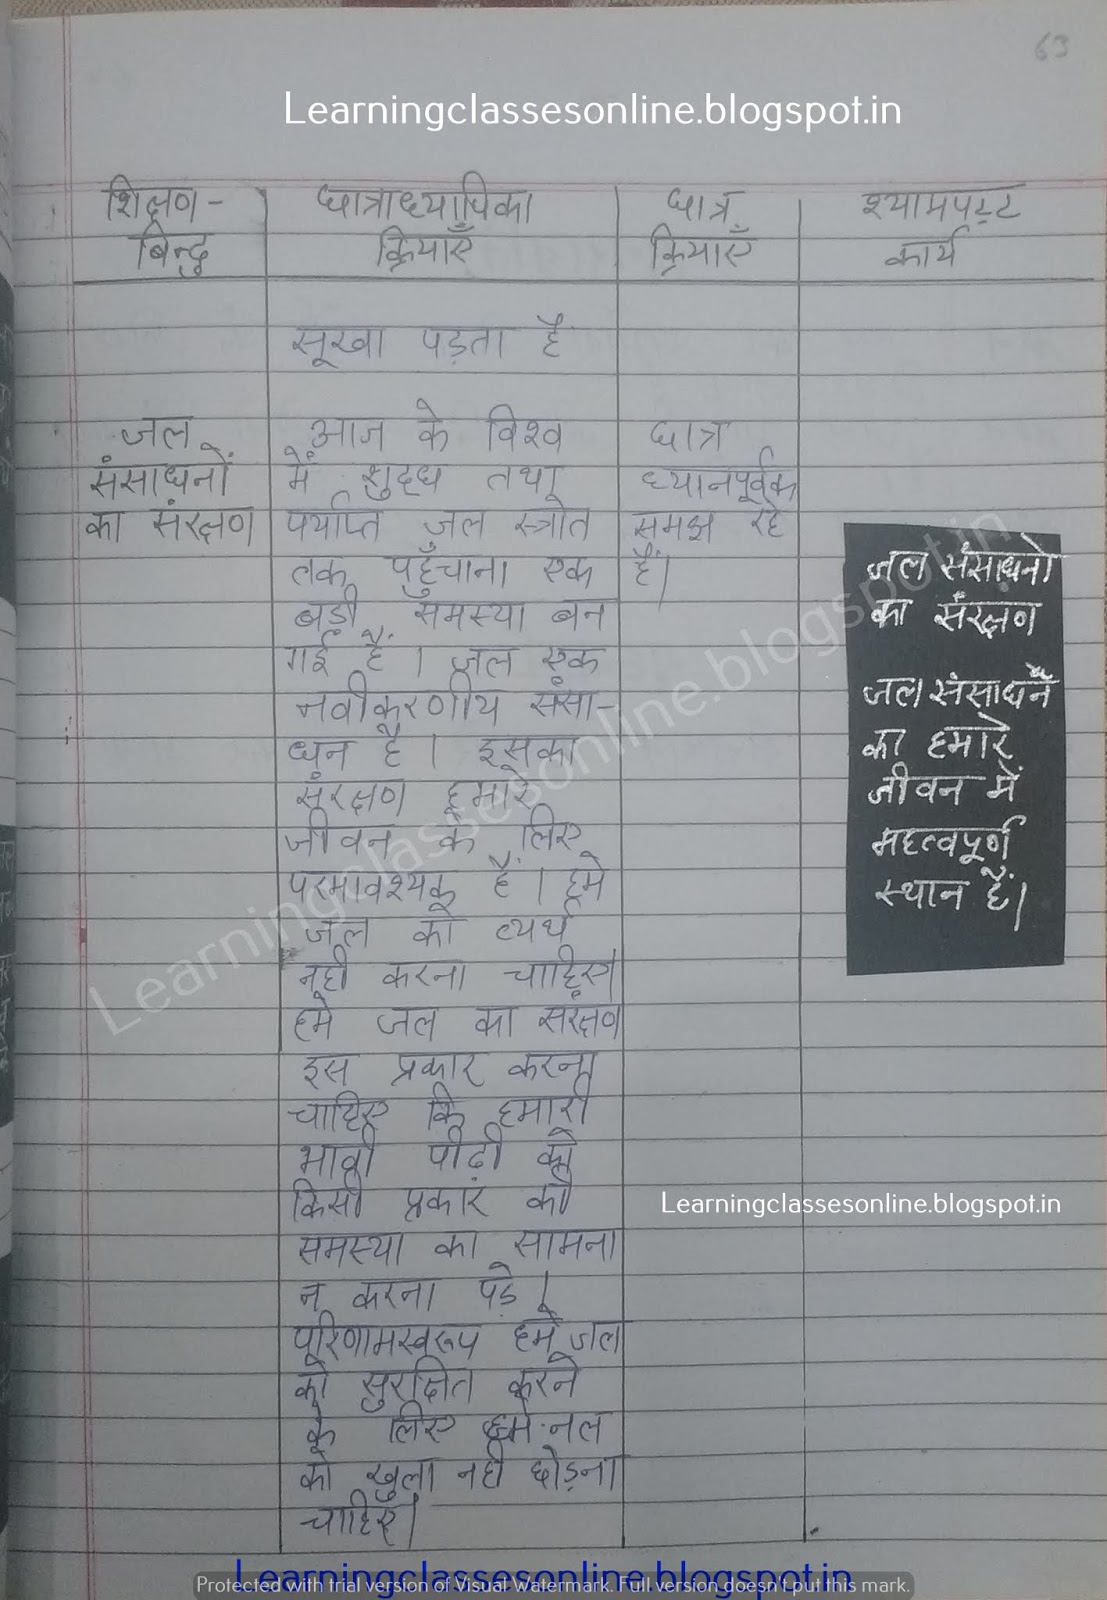 63
Learningclassesonline.blogspot.in
शिक्षण-
बिन्दु
छात्राध्यापिका
क्रियाएँ
छात्र
क्रियाएँ
श्यामपट्ट
कार्य
सूखा पड़ता है
जल
संसाधनों
का संरक्षण
आज के विश्व
में शुद्ध तथा
पर्याप्त जल स्त्रोत
तक पहुँचाना एक
बड़ी समस्या बन
गई है। जल एक
नवीकरणीय संसा-
धन है। इसका
संरक्षण हमारे
जीवन के लिए
परमावश्यक है। हमे
जल को व्यर्थ
नही करना चाहिए।
हमे जल का संरक्षण
इस प्रकार करना
चाहिए कि हमारी
भावी पीढ़ी को
किसी प्रकार की
समस्या का सामना
न करना पड़े।
परिणामस्वरूप हमे जल
को सुरक्षित करने
के लिए हमे नल
को खुला नही छोड़ना
चाहिए।
छात्र
ध्यानपूर्वक
समझ रहे
हैं।
जल संसाधनो
का संरक्षण
जल संसाधनों
का हमारे
जीवन में
महत्वपूर्ण
स्थान हैं।
Learningclassesonline.blogspot.in
Learningclassesonline.blogspot.in
Learningclassesonline.blogspot.in
Protected with trial version of Visual Watermark. Full version doesn't put this mark.